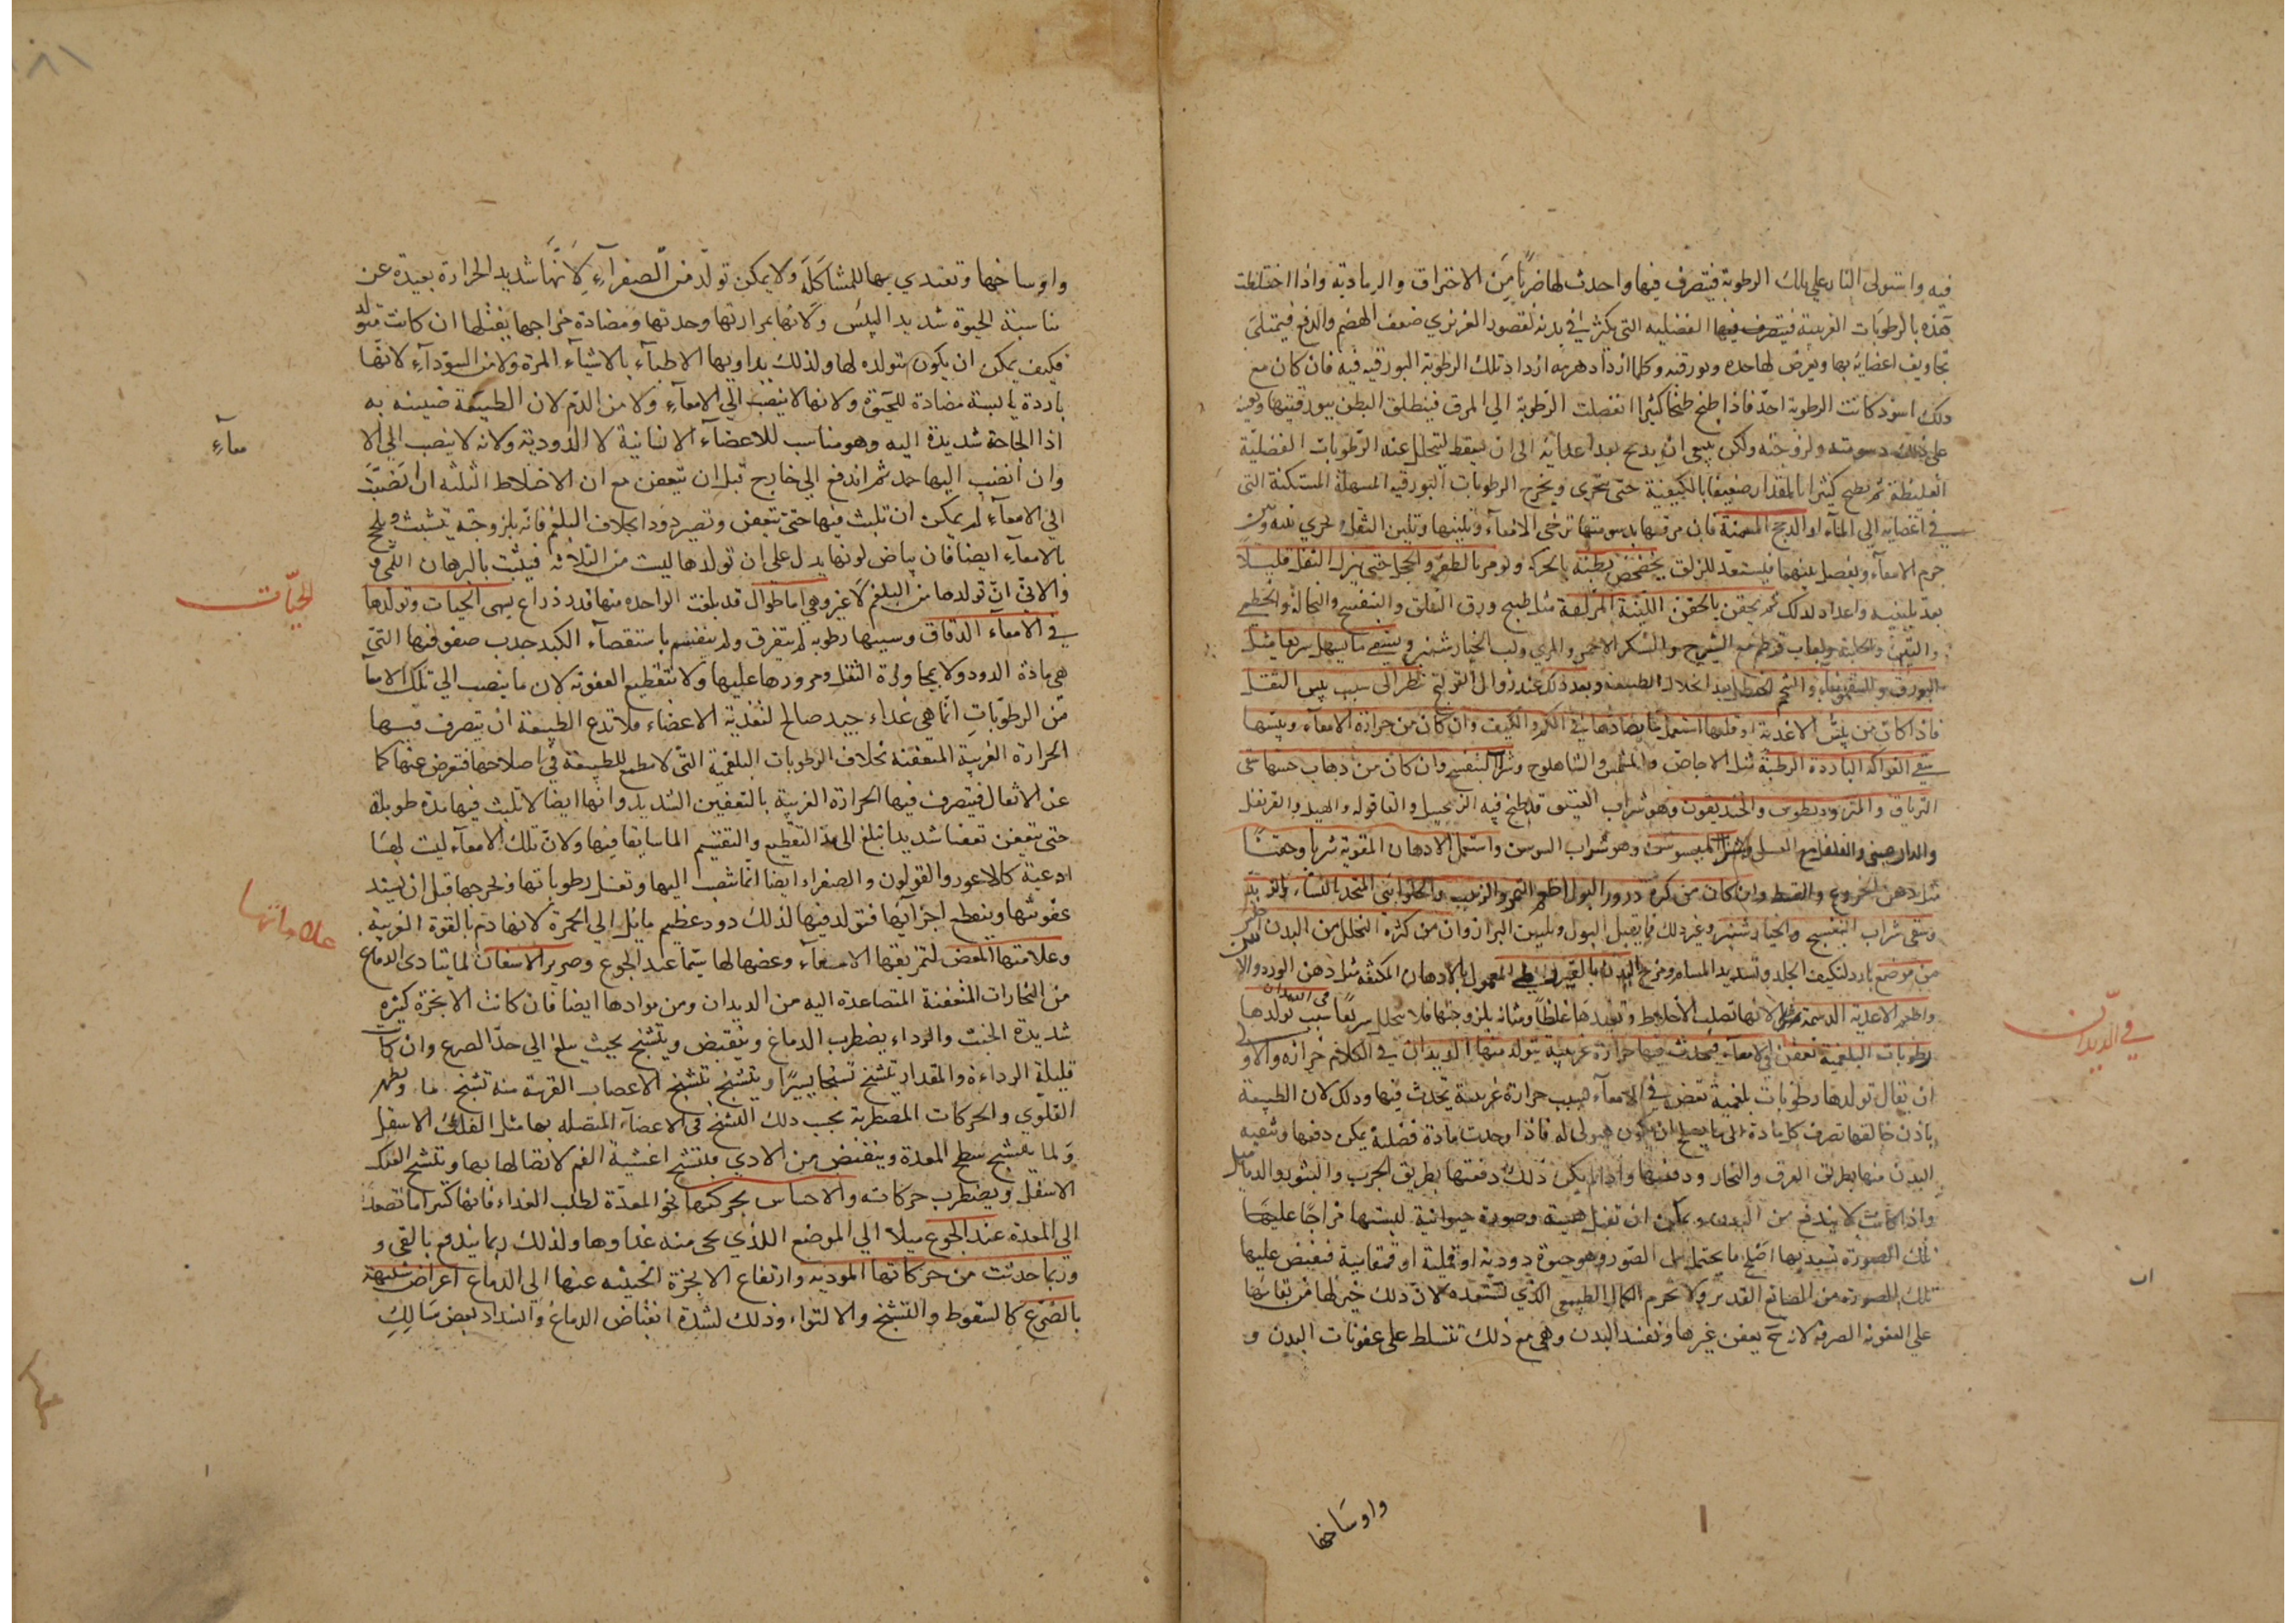 فيه واستولى النار على تلك الرطوبة فيتصرف فيها واحدث لها ضربًا مِن الاحتراق والرمادية واذا اختلطت
هذه بالرطوبات الغريبة الفضلية التي يكثر في بدنه لقصور الغريزي ضعف الهضم والدفع فيمتلئ
تجاويف اعضائه بها ويعرض لها حده وبورقيه وكلما ازداد هرمه ازداد تلك الرطوبة البورقيه فيه فان كان مع
ذلك اسود كانت الرطوبة احدّ فاذا طبخ طبخا كثيرا انفصلت الرطوبة الي المرق فينطلق البطن ببورقيتها
على ذلك دسومته ولزوجته ولكن ينبغي ان يذبح بعد اعدائه الى ان يسقط ليتحلل عنه الرطوبات الفضلية
الغليظة ثم يطبخ كثيرا بالمقدار ضعيفا بالكيفية حتى يتهرى ويخرج الرطوبات البورقيه المسهلة المستكنة التي
في اعضايه الي الماء او الدجج المسمنة فان مرقها بدسومتها ترخى الامعاء وتلينها وتلين الثفل
جرم الامعاء ويفصل بينهما فيستعد للزلق يخضخض بطنه بالحركة ويومر بالطفر والحجل حتى ينزل الثفل قليلا
بعد تليينه واعداد لذلك ثم يحقن بالحقن اللينة المزلقة مثل طبيخ ورق السلق والبنفسج والنخالة والخطمي
والتين والحلبة ولعاب مع الشيرج والسكر الاحمر والمري ولب الخيارشنبر ويسقى ما يسهل سريعا مثل
البورق والسقمونيا وشحم الحنظل بعد انحلال الطبيعة وبعد ذلك عند زوال القولنج ينظر الى سبب يبس الثفل
فاذا كان من يبس الاغذية او قلتها استعمل ما يضادها في الكم والكيف وان كان من حرارة الامعاء ويبسها
سقى الفواكه الباردة الرطبة مثل الاجاص والمشمش والشاهلوج وشراب البنفسج وان كان من ذهاب حسها سقى
الترياق والمثروديطوس والخنديقون وهو شراب العتيق قد طبخ فيه الزنجبيل والقاقوله والهيل والقرنفل
والدارصيني والفلفل مع العسل وشراب الميسوسن وهو شراب السوسن واستعمل الادهان المقوية شربا وحقنًا
مثل دهن الخروع والقسط وان كان من كثرة درور البول اطعم التمر والزبيب والحلوا المتخذ بالنشاء
وسقى شراب البنفسج والخيارشنبر وغير ذلك مما يقلل البول ويلين البراز وان من كثرة التحلل من البدن
من موضع بارد لتكثيف الجلد وتسديد المسام ومرخ البدن بالقيروطي المعمول بالادهان المكثفة مثل دهن الورد والآس
واطعم الاغذية الدسمة لانها تصلب الأخلاط وتفيدها غلظًا ومتانة بلزوجتها فلا يتحلل سريعًا
في الديدان سبب تولدها
رطوبات البلغمية تعفن في الامعاء فيحدث فيها حرارة غريبة يتولد منها الديدان في الكلام حزازه والاولى
ان يقال تولدها رطوبات بلغمية تعفن في الامعاء بسبب حرارة غريبة تحدث فيها وذلك لان الطبيعة
باذن خالقها تصرف كل مادة الى ما يصلح ان يكون هيولى له فاذا وجدت مادة فضلية يمكن دفعها وتنقيه
البدن منها بطريق العرق والبخار ودفعتها واذا لم يكن ذلك دفعتها بطريق الجرب والبثور والدماميل
واذا كانت لا يندفع من البدن ويمكن ان تقبل هيئة وصورة حيوانية البستها مزاجًا عليها
تلك الصورة تستعد بها اصلح ما يحتمل من الصور وهو حيوة دودية او قملية او قمقامية فيفيض عليها
تلك الصورة من الصانع القدير ولا تحرم الكمال الطبيعي الذي تستعده لانّ ذلك خير لها من بقائها
على العفونة الصرفة لانه ح يعفن غيرها ويفسد البدن وهي مع ذلك تتسلط على عفونات البدن و
واوساخها
في الديدان
واوساخها وتغتدي بها للمشاكلة ولا يمكن تولدٌ من الصفراء لانّها شديد الحرارة بعيدة عن
مناسبة الحيوة شديد اليبس ولانها بمرارتها وحدتها ومضادة مزاجها يقتلها ان كانت متولد
فكيف يمكن ان يكون متولده لها ولذلك يداويها الاطباء بالاشياء المرة ولا من السوداء لانّها
باردة يابسة مضادة للحيوة ولانها لا ينصب الي الامعاء ولا من الدم لان الطبيعة ضنينه به
اذا الحاجة شديدة اليه وهو مناسب للاعضاء الانسانية لا الدودية ولانه لا ينصب الي الا
معاء
وان انصب اليها جمد ثم اندفع الي خارج قبل ان يتعفن مع ان الاخلاط الثلثه ان نصبّت
الي الامعاء لم يمكن ان تلبث فيها حتى تتعفن وتصير دودا بخلاف البلغم فانه بلزوجته يتشبث ويلحج
بالامعاء ايضا فان بياض لونها يدل على ان تولدها ليست من الثلاثه فيثبت بالبرهان اللمي و
والانيّ انّ تولدها من البلغم لا غير وهي اما طوال قد بلغت الواحدة منها قدر ذراع يسمى الحيات وتولدها
الحيّات
في الامعاء الدقاق وسببها رطوبه لم يتفرق ولم ينقسم باستقصاء الكبد جذب صفو فيها التي
هي مادة الدود ولا بمجاورة الثفل ومرورها عليها ولا بتقطيع العفونه لان ما ينصب الي تلك الامعا
من الرطوبات انما هي غذاء جيد صالح لتغذية الاعضاء فلا تدع الطبيعة ان يتصرف فيها
الحرارة الغريبة المتعفنة بخلاف الرطوبات البلغمية التي لا مطمع للطبيعة في اصلاحها فتعرض عنها كما
عن الاثفال فيتصرف فيها الحرارة الغريبة بالتعفين الشديد وانها ايضا لا تلبث فيها مدة طويلة
حتى يتعفن تعفنا شديدا تبلغ الى حد التقطيع والتقسيم الماسابقا فيها ولانّ تلك الامعاء ليست لها
اوعية كالاعور والقولون والصفراء ايضا انما تنصب اليها وتغسل رطوباتها ونخرجها قبل ان يشتد
عفونتها وينقطع اجزاؤها فتولد فيها لذلك دود عظيم مايل الي الحمرة لانها دم بالقوة القريبة
وعلاماتها المغص لتمزيقها الامعاء وعضها لها سيّما عند الجوع وصرير الاسنان لما يتادى الدماغ
علاماتها
من البخارات المتعفنة المتصاعدة اليه من الديدان ومن موادها ايضا فان كانت الابخرة كثيره
شديدة الخبث والرداء يضطرب الدماغ وينقبض ويتشنج بحيث يبلغ الي حدّ الصرع وان كانت
قليلة الرداءة والمقدار تشنج تشنجا يسيرًا ويتشنج بتشنج الاعصاب القريبة منه تشنج ما ويظهر
التلوّي والحركات المضطربة بحسب ذلك التشنج في الاعضاء المتصله بها مثل الفك الاسفل
ولما يتشنج سطح المعدة وينقبض من الاذي فيتشنج اغشية الفم لاتصالها بها ويتشنج الفك
الاسفل ويضطرب حركاته والاحساس بحركتها نحو المعدة لطلب الغذاء فانها كثيرا ما تصعد
الى المعدة عند الجوع ميلا الي الموضع اللذي يجي منه غذاوها ولذلك ربما يندفع بالقي و
وربما حدثت من حركاتها الموذيه وارتفاع الابخرة الخبيثه عنها الي الدماغ اعراض شبيهة
بالصرع كالسقوط والتشنج والالتواء وذلك لشدة انقباض الدماغ وانسداد بعض مسالك